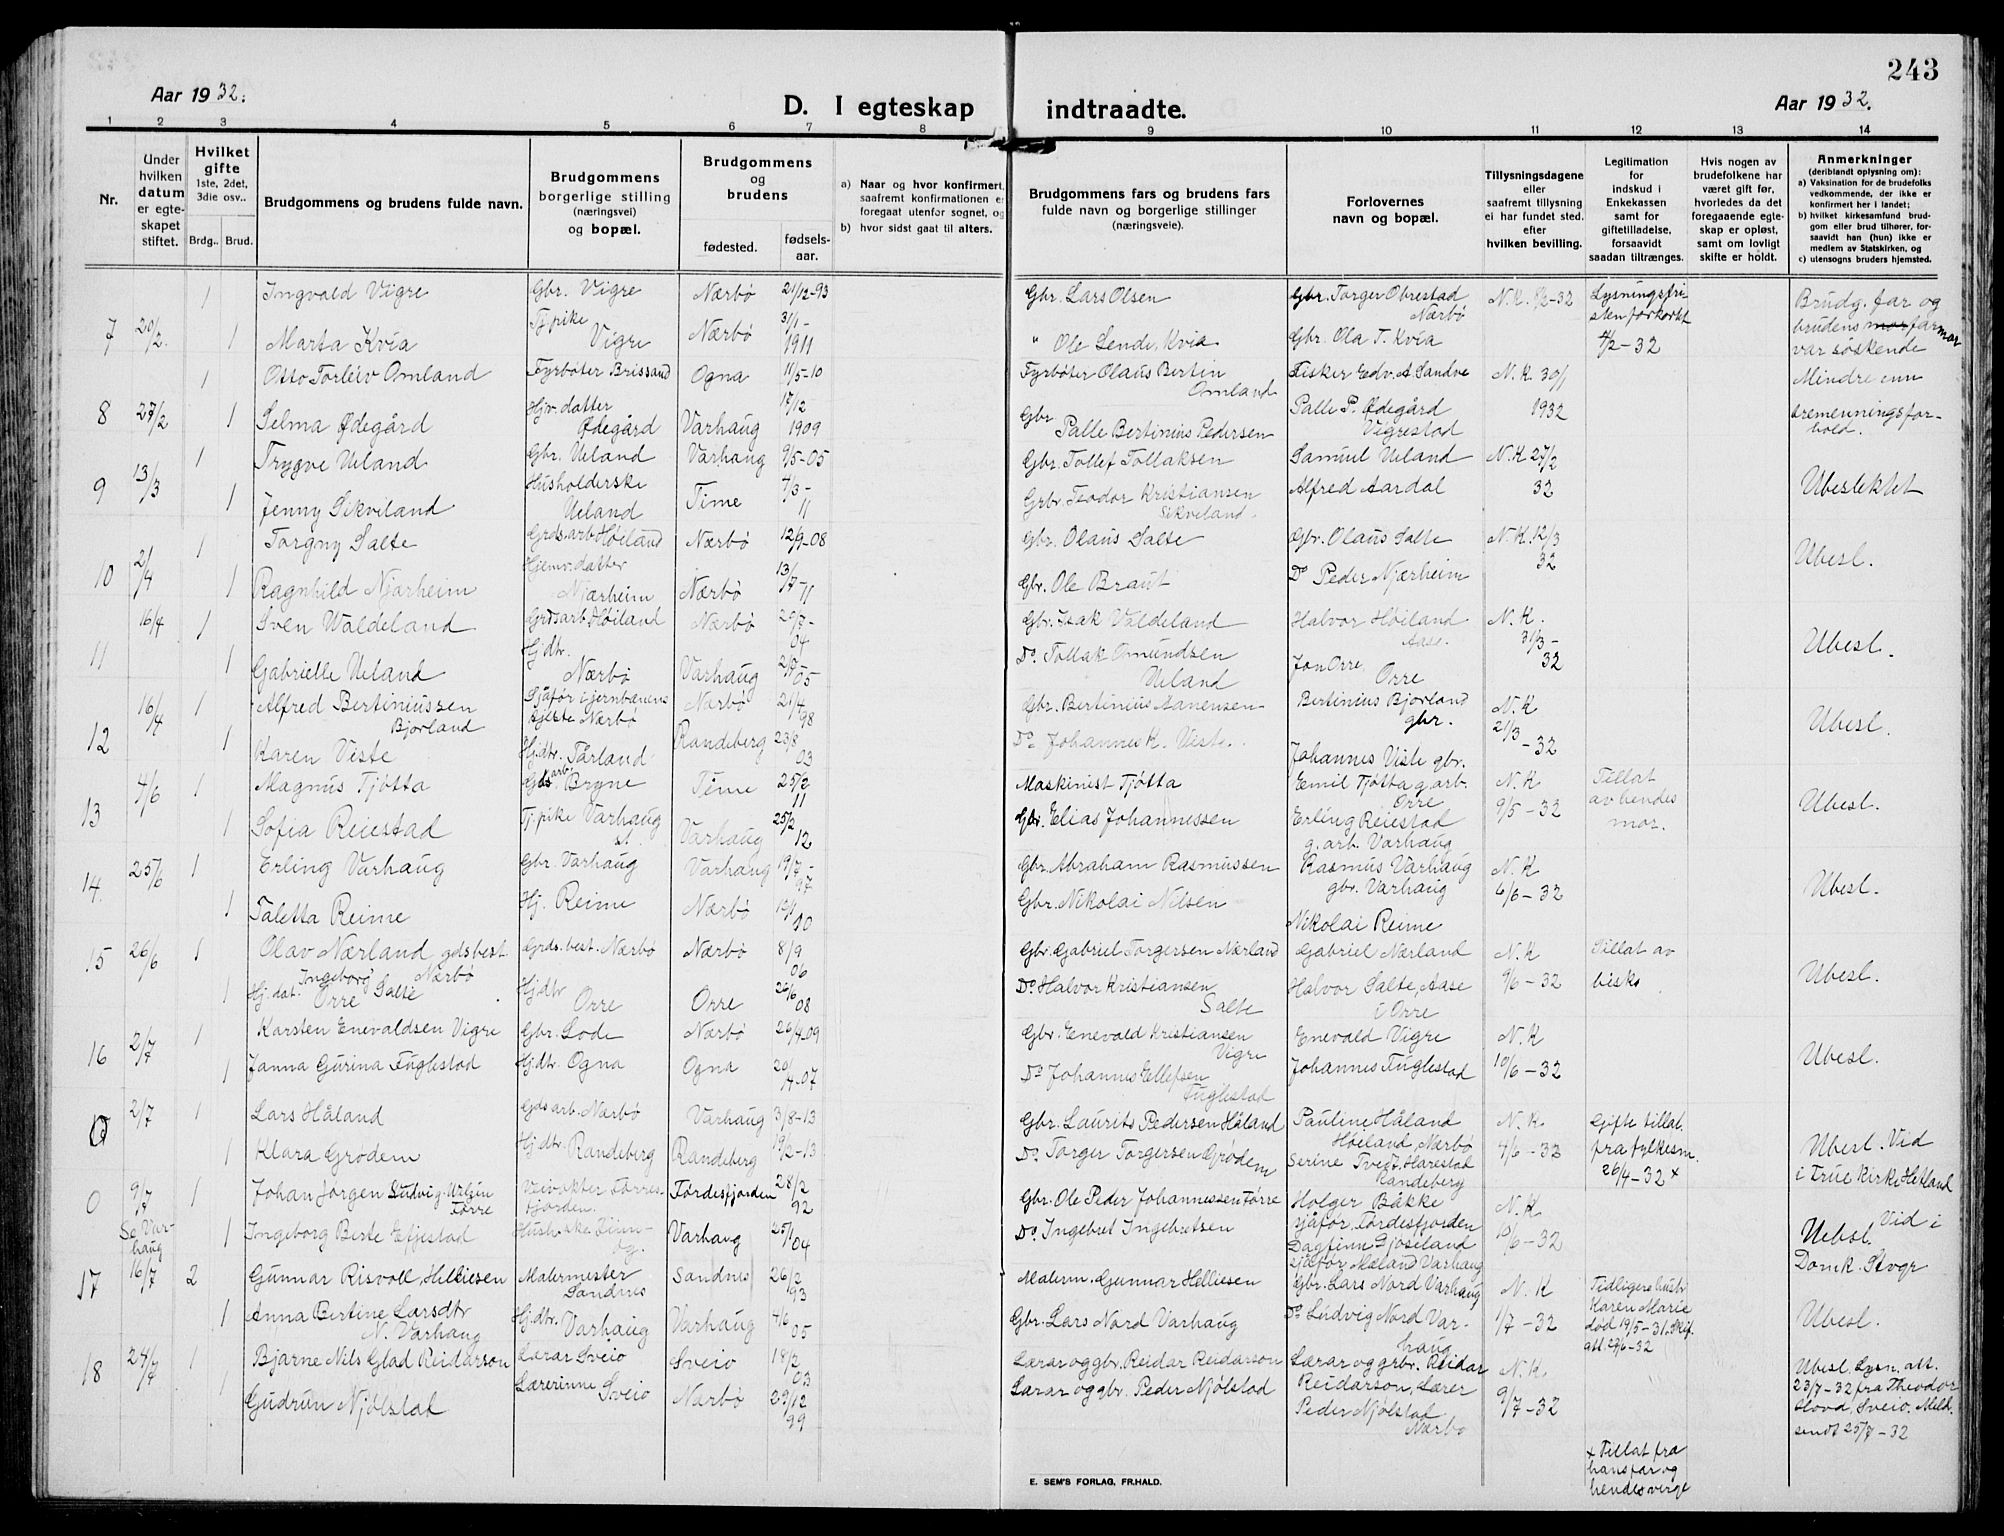 243
Aar 1932.
D. I egteskap indtraadte.
Aar 1932.
1 2 3 4 5 6 7 8 9 10 11 12 13 14
Nr.
Under hvilken datum er egteskapet stiftet.
Hvilket gifte 1ste, 2det, 3die osv..
Brdg.. Brud.
Brudgommens og brudens fulde navn.
Brudgommens borgerlige stilling (næringsvei) og bopæl.
Brudgommens og brudens
fødested. fødselsaar.
a) Naar og hvor konfirmert, saafremt konfirmationen er foregaat utenfor sognet, og
b) hvor sidst gaat til alters.
Brudgommens fars og brudens fars fulde navn og borgerlige stillinger (næringsveie).
Forlovernes navn og bopæl.
Tillysningsdagene eller saafremt tillysning ei har fundet sted, efter hvilken bevilling.
Legitimation for indskud i Enkekassen samt for giftetilladelse, forsaavidt saadan tiltrænges.
Hvis nogen av brudefolkene har været gift før, hvorledes da det foregaaende egteskap er opløst, samt om lovligt skifte er holdt.
Anmerkninger (deriblandt oplysning om):
a) Vaksination for de brudefolks vedkommende, der ikke er konfirmert her i landet;
b) hvilket kirkesamfund brudgom eller brud tilhører, forsaavidt han (hun) ikke er medlem av Statskirken, og
c) utensogns bruders hjemsted.
7 20/2. 1 Ingvald Vigre Gbr. Vigre Nærbø 21/12-93 Gbr. Lars Olsen Gbr. Torger Obrestad Nærbø N.K. 8/2-32 Lysningsfristen forkortet 4/2-32 Brudg. far og brudens mor farmor var søskende
1 Marta Kvia Tj.pike Vigre Nærbø 31/1-1911 " Ole Sende, Kvia Gbr. Ola T. Kvia
8 27/2 1 Otto Torleiv Omland Fyrbøter Brissand Ogna 11/5-10 Fyrbøter Olaus Bertin Omland Fisker Edv. A Sandve N.K. 30/1 1932 Mindre enn tremenningsforhold.
1 Selma Ødegård Hjv. datter Ødegård Varhaug 17/12-1909 Gbr Palle Bertinius Pedersen Palle P. Ødegård Vigrestad
9 13/3 1 Trygve Ueland Gbr. Ueland Varhaug 9/5-05 Gbr. Tollef Tollaksen Samuel Ueland N.K 27/2 32 Ubeslektet
1 Jenny Sikviland Husholderske Ueland Time 7/3-11 Grbr Teodor Kristiansen Sikviland. Alfred Aardal
10 2/4 1 Torgny Salte Grds.arb Høiland Nærbø 12/9-08 Gbr. Olaus Salte Gbr. Olaus Salte N.K. 12/3 32 Ubesl.
1 Ragnhild Njærheim Hjemv. datter Njærheim Nærbø 13/7-11 Gbr. Ole Braut Do Peder Njærheim
11 16/4 1 Sven Waldeland Grdsarb. Høiland Nærbø 20/7-04 Gbr. Isak Valdeland Halvor Høiland Aase. N.K. 31/3-32 Ubesl.
1 Gabrielle Ueland Hj.dtr. Nærbø Varhaug 2/9 05 Do. Tollak Omundsen Ueland Jon Orre Orre
12 16/4 1 Alfred Bertiniussen Bjorland Sjåfør i jernbanens tjeneste Nærbø Nærbø 21/4 98 Gbr. Bertinius Aanensen Bertinius Bjorland gbr. N.K 21/3-32 Ubesl.
1 Karen Viste Hj.dtr. Tårland. Randeberg 23/8 03 Do Johannes K. Viste. Johannes Viste gbr.
13 4/6 1 Magnus Tjøtta Gds arb. Bryne Time 25/2 11 Maskinist Tjøtta Emil Tjøtta g.arb. Orre N.K 9/5-32 Tillat av hendes mor. Ubesl.
1 Sofia Reiestad Tj.pike Varhaug st. Varhaug 25/2 12 Gbr. Elias Johannessen Erling Reiestad g. arb. Varhaug
14. 25/6 1 Erling Varhaug Gbr. Varhaug Varhaug 19/7-97 Gbr. Abraham Rasmussen Rasmus Varhaug gbr. Varhaug N.K 6/6-32 Ubesl.
1 Taletta Reime Hj. Reime Nærbø Gbr. Nikolai Nilsen Nikolai Reime
15 26/6 1 Olav Nærland gdsbest Nærbø Grds.best. Nærbø Nærbø 8/9 06 Gbr. Gabriel Torgersen Nærland Gabriel Nærland N.K 9/6-32 Tillat av bisko Ubesl.
1 Hj.dat. Ingeborg Orre Salte Hj.dtr Orre Orre 26/6 08 Do Halvor Kristiansen Salte Halvor Salte, Aase i Orre
16 2/7 1 Karsten Enevaldsen Vigre Gbr. Lode Nærbø 26/4-09 Gbr. Enevald Kristiansen Vigre Enevald Vigre N.K 10/6-32 Ubesl.
1 Janna Gurina Fuglestad Hj.dtr. Ogna Ogna 20/4-07 Do Johannes Ellefsen Fuglestad Johannes Fuglestad
0 2/7 1 Lars Håland Gds arb. Nærbø Varhaug 3/8-13 Gbr. Laurits Pedersen Håland Pauline Håland Høiland, Nærbø N.K. 4/6-32 Gifte tillat. fra fylkesm. 26/4-32 x Ubesl. Vid i Frue kirke Hetland
1 Klara Grødem Hj.dtr. Randeberg Randeberg 19/2-13 Do. Torger Torgersen Grødem Serine Tvedt, Harestad Randeberg
0 9/7 Se Varhaug 1 Johan Jørgen Ludvig Førre Veivokter Førresfjorden. Førdesfjorden 28/2 92 Gbr. Ole Peder Johannessen Førre Holger Bakke sjåfør, Førdesfjorden N.K. 10/6-32 Uebsl. Vid i Domk. Stvgr
1 Ingeborg Berte Efjestad Varhaug 25/1 04 Do. Ingebret Ingebretsen Dagfinn Gjoseland sjåfør Mæland Varhaug
17 16/7 2 Gunnar Risvoll, Helliesen Malermester Sandnes Sandnes 26/2 93 Malerm. Gunnar Helliesen Gbr. Lars Nord Varhaug N.K 1/7-32 Tidligere hustr Karen Marie død 19/5-31. Skif. att. 29/6-32 Ubesl.
1 Anna Bertine Larsdtr N. Varhaug Hj.dtr. Varhaug Varhaug 4/6 05 Gbr. Lars Nord Varhaug Do Ludvig Nord Varhaug
18 24/7 1 Bjarne Nils Glad Reidarson Lærar Sveio Sveio 18/2 03 Lærar og gbr. Reidar Reidarson Lærar og grbr. Reidar Reidarson, Lærer N.K. 9/7-32 Ubesl. Lysn. att. 23/7-32 fra Theodor Hovd, Sveio. Meld. sendt 25/7-32
1 Gudrun Njølstad Lærerinne Sveio Nærbø 29/12 99 Lærar og gbr. Peder Njølstad Peder Njølstad Nærbø
x Tillat fra hans far og hendes verge
E. SEM'S FORLAG, FR.HALD.